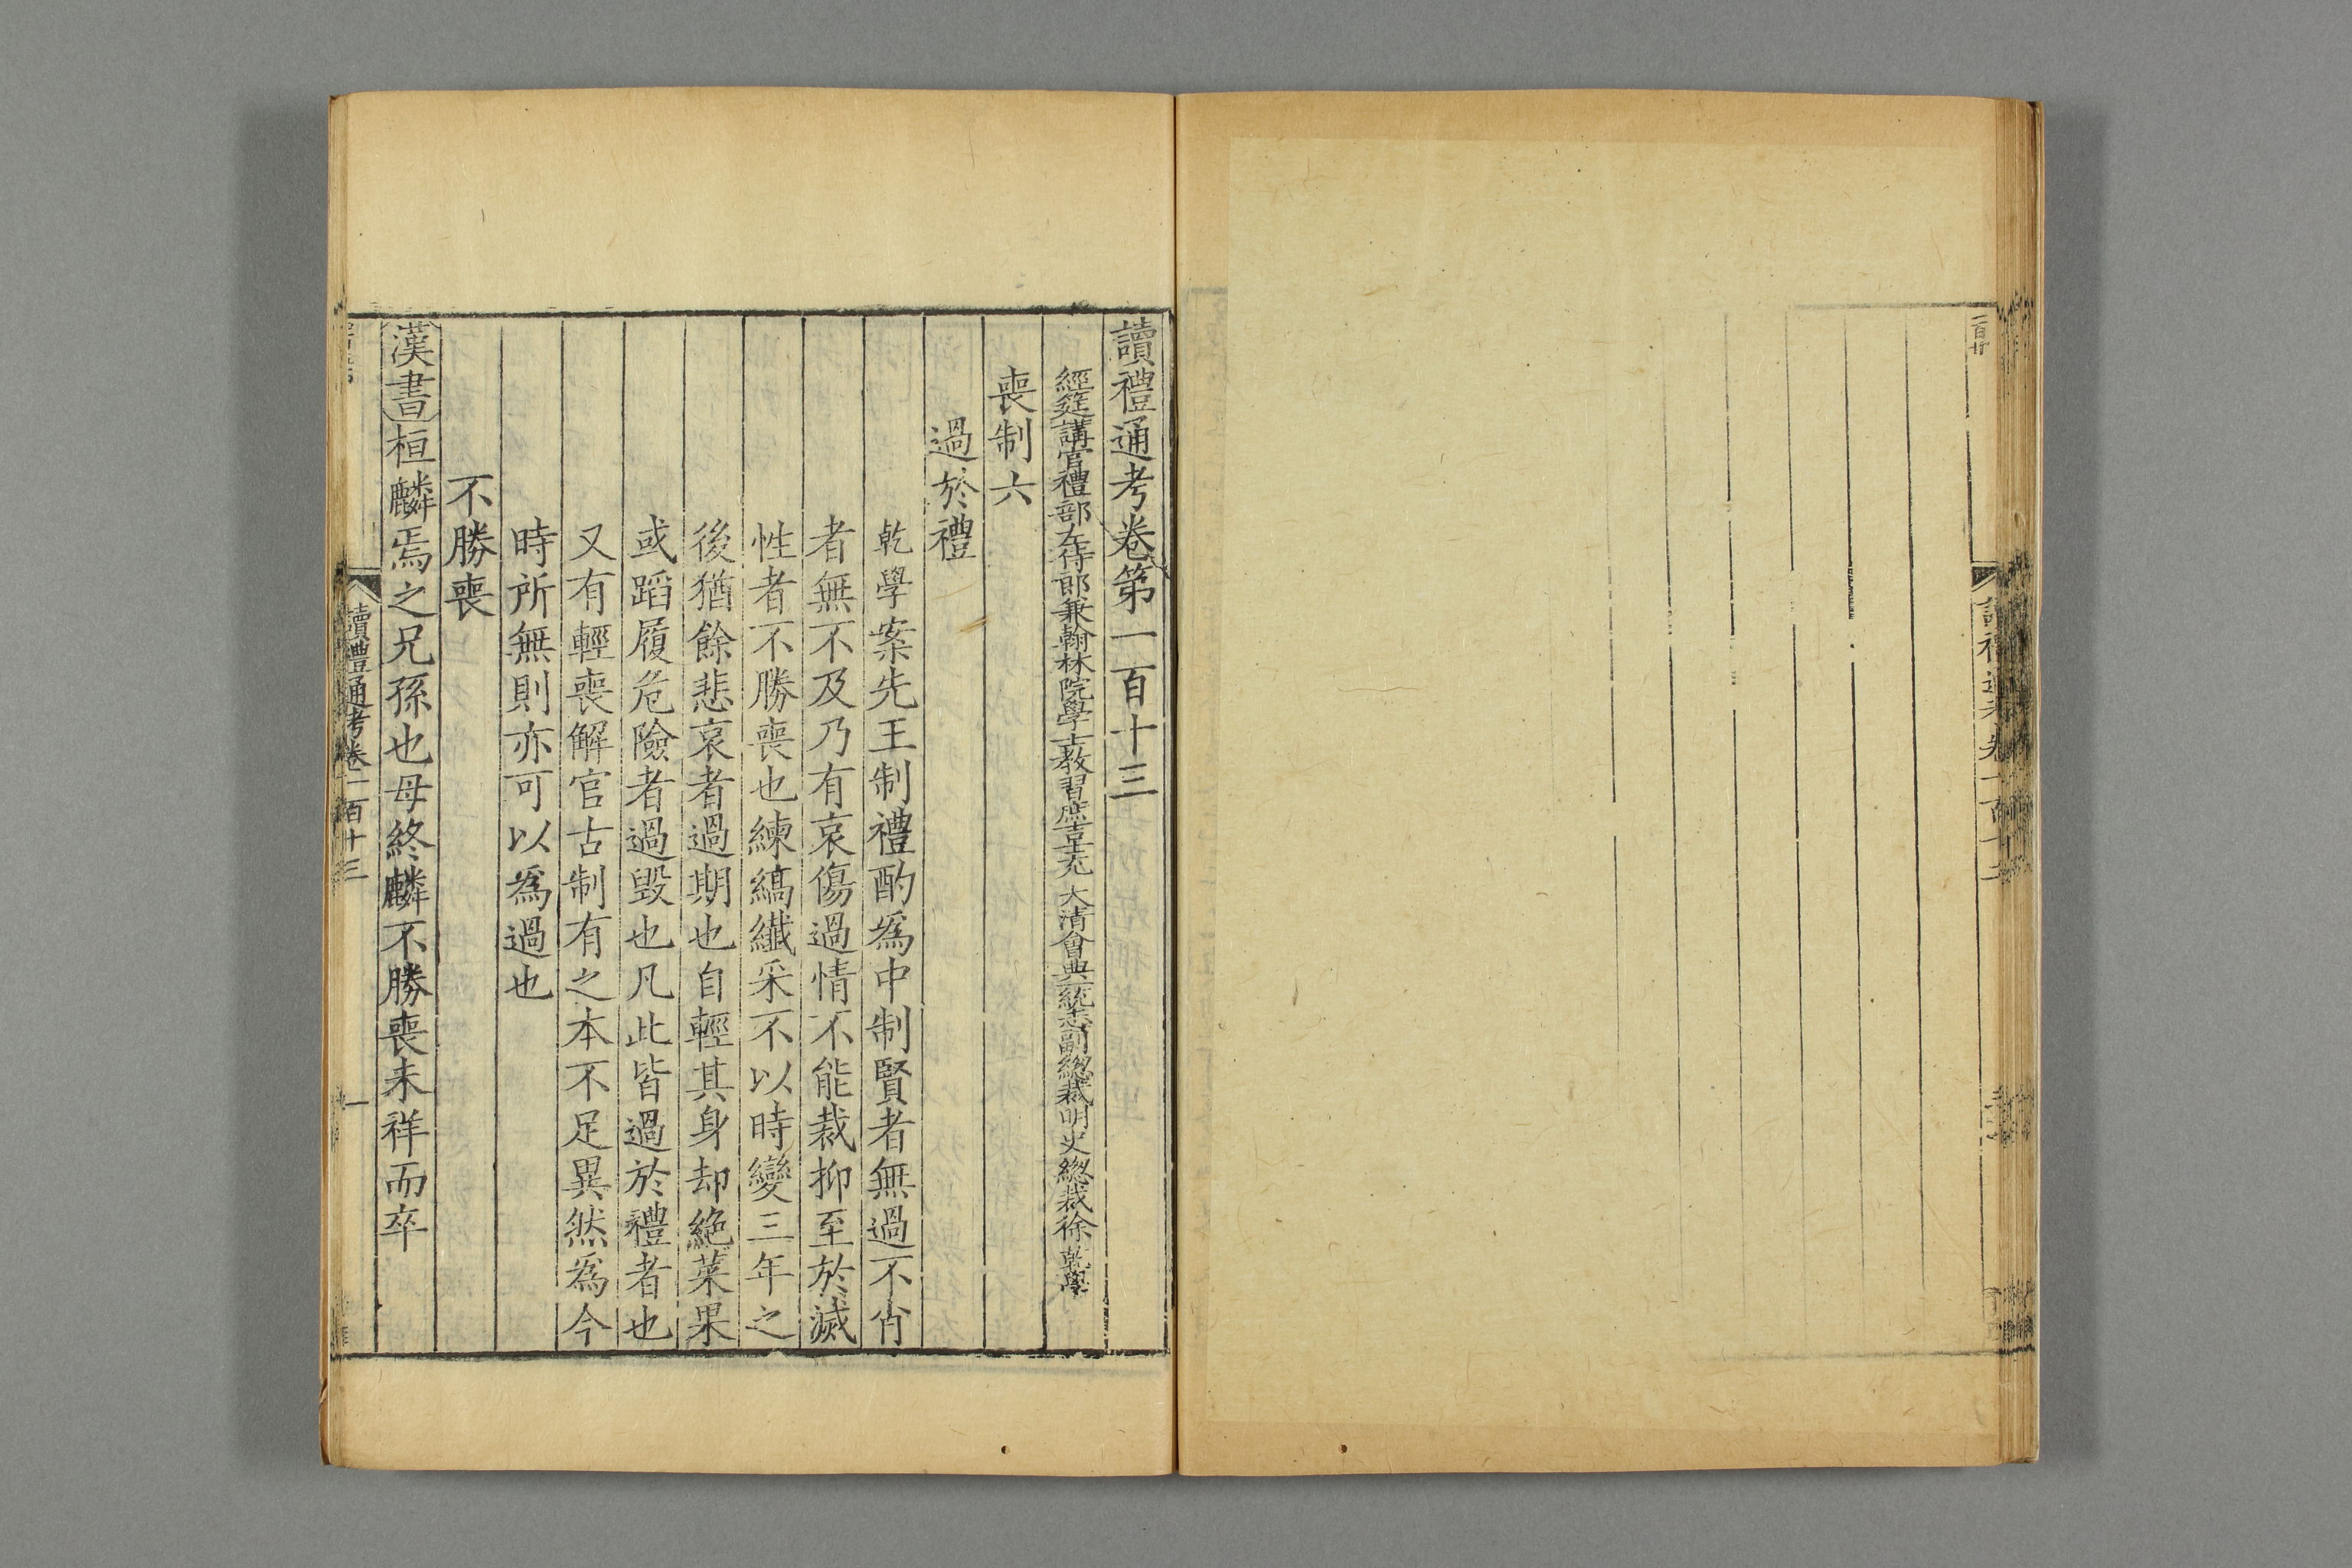 讀禮通考卷第一百十三
經筵講官禮部左侍郎兼翰林院學士教習庶吉士充 大清會典一統志副總裁明史總裁徐乾學
喪制六
過於禮
乾學案先王制禮酌為中制賢者無過不肖
者無不及乃有哀傷過情不能裁抑至於滅
性者不勝喪也練縞纖采不以時變三年之
後猶餘悲哀者過期也自輕其身却絶菜果
或蹈履危險者過毀也凡此皆過於禮者也
又有輕喪解官古制有之本不足異然為今
時所無則亦可以為過也
不勝喪
漢書桓麟焉之兄孫也母終麟不勝喪未祥而卒
讀禮通考卷一百十三
一